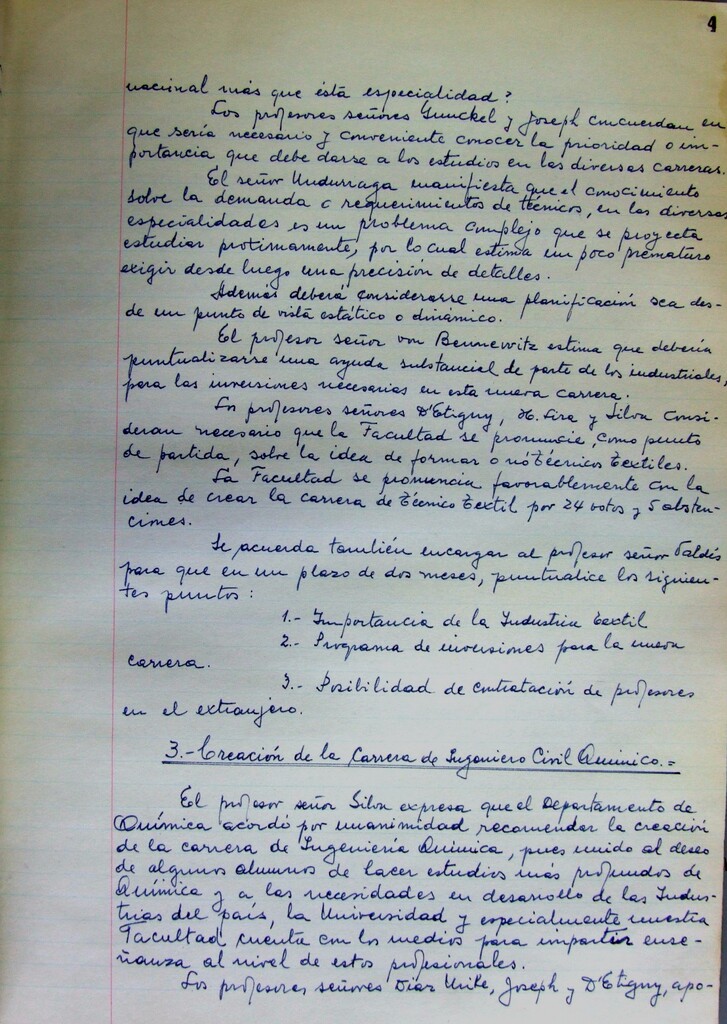 4
nacional más que ésta especialidad?
Los profesores señores Gunckel y Joseph concuerdan en
que sería necesario y conveniente conocer la prioridad o im-
portancia que debe darse a los estudios en las diversas carreras.
El señor Undurraga manifiesta que el conocimiento
sobre la demanda o requerimientos de técnicos, en las diversas
especialidades es un problema complejo que se proyecta
estudiar protimamente, por lo cual estima un poco prematuro
exigir desde luego una precisión de detalles.
Además deberá considerarse una planificación sea des-
de un punto de vista estático o dinámico.
El profesor señor von Bennewitz estima que debería
puntualizarse una ayuda substancial de parte de los industriales,
para las inversiones necesarias en esta nueva carrera.
Los profesores señores D'Etigny, H. Lira y Silva consi-
deran necesario que la Facultad se pronuncie, como punto
de partida, sobre la idea de formar o nó Técnicos Textiles.
La Facultad se pronuncia favorablemente con la
idea de crear la carrera de Técnico Textil por 24 votos y 5 absten-
ciones.
Se acuerda también encargar al profesor señor Valdés
para que en un plazo de dos meses, puntualice los siguien-
tes puntos:
1.- Importancia de la Industria textil
2.- Programa de inversiones para la nueva
carrera.
3.- Posibilidad de contratación de profesores
en el extranjero.
3.- Creación de la Carrera de Ingeniero Civil Químico.=
El profesor señor Silva expresa que el Departamento de
Química acordó por unanimidad recomendar la creación
de la carrera de Ingeniería Química, pues unido al deseo
de algunos alumnos de hacer estudios más profundos de
Química y a las necesidades en desarrollo de las Indus-
trias del país, la Universidad y especialmente nuestra
Facultad cuenta con los medios para impartir ense-
ñanza al nivel de estos profesionales.
Los profesores señores Díaz Uribe, Joseph y D'Etigny, apo-